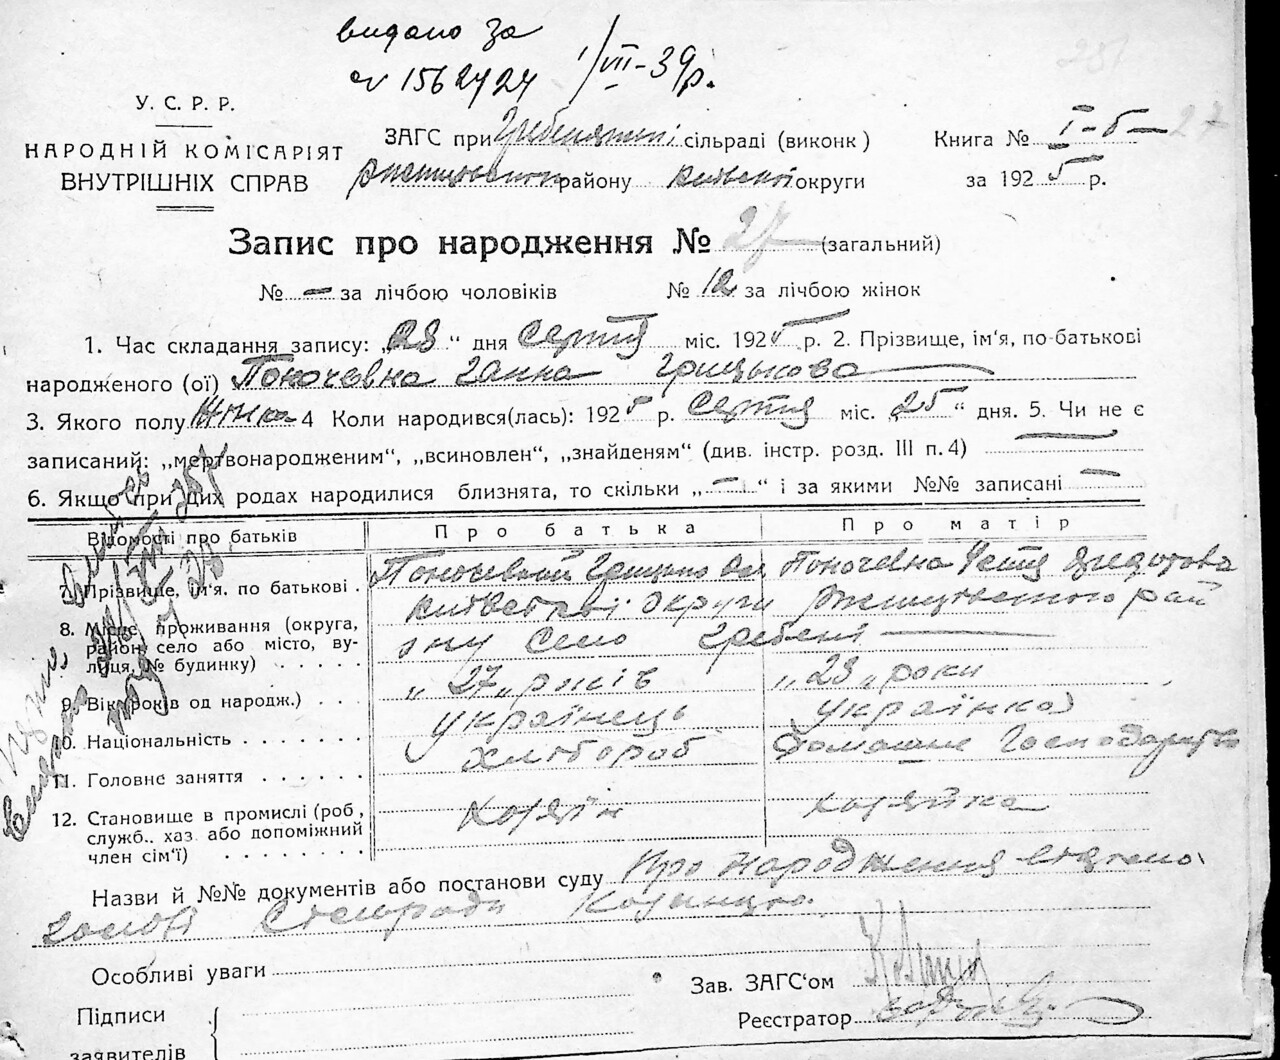 видано за
№ 1562424 1/VII-39р.
У. С. Р. Р.
НАРОДНІЙ КОМІСАРІЯТ
ВНУТРІШНІХ СПРАВ
ЗАГС при Гребенській сільраді (виконк)
району Київської округи
Книга № I-б-27
за 1925 р.
Запис про народження № 27 (загальний)
№ — за лічбою чоловіків № 12 за лічбою жінок
1. Час складання запису: „28“ дня Серпня міс. 1925 р. 2. Прізвище, ім'я, по-батькові
народженого (ої) Поночевна Ганна Грицькова
3. Якого полу Жінка 4 Коли народився(лась): 1925 р. Серпня міс. „25“ дня. 5. Чи не є
записаний: „мертвонародженим“, „всиновлен“, „знайденям“ (див. інстр. розд. III п. 4) —
6. Якщо при цих родах народилися близнята, то скільки „—“ і за якими №№ записані —
Відомості про батьків Про батька Про матір
7. Прізвище, ім'я. по батькові . Грицько Поночевна
8. Місце проживання (округа, Київської Округи
район, село або місто, ву- ону село Гребені —
лиця, № будинку) . . . . .
9. Вік (років од народж.) . . . „27„ років „28„ роки
10. Національність . . . . . . . українець українка
11. Головне заняття . . . . . . хлібороб Домашнє Господарство
12. Становище в промислі (роб, хозяїн хозяйка
служб., хаз. або допоміжний
член сім'ї) . . . . . . . .
Назви й №№ документів або постанови суду Про народження
Сільради
Особливі уваги
Зав. ЗАГС'ом
Підписи
Реєстратор
заявителів